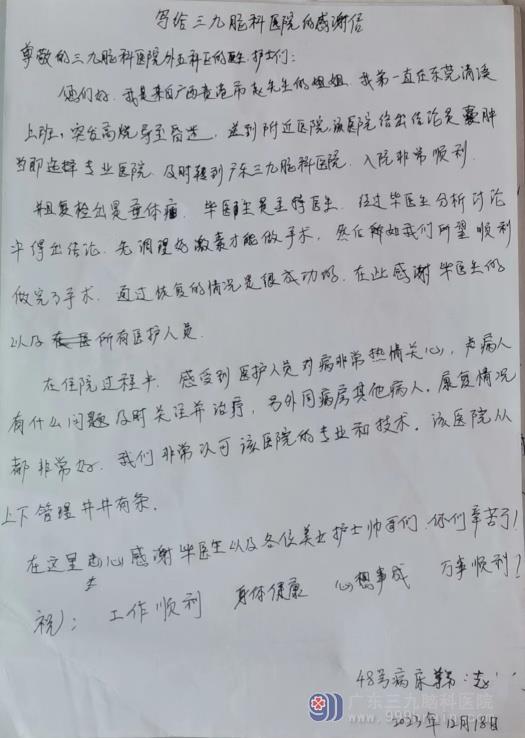 写给三九脑科医院的感谢信
尊敬的三九脑科医院外五科区的医生、护士们：
你们好，我是来自广西贵港市赵先生的姐姐，我弟一直在东莞清溪
上班，突发高烧导至昏迷，送到附近医院，该医院给出结论是囊肿
当即选择专业医院，及时转到广东三九脑科医院，入院非常顺利
并且复检出是垂体瘤，毕医生是主特医生，经过毕医生分析讨论
中得出结论，先调理好激素才能做手术，然后如我们所望顺利
做完了手术，通过恢复的情况是很成功的，在此感谢毕医生的
以及所有医护人员.
在住院过程中，感受到医护人员对病非常热情关心，病人
有什么问题及时关注并治疗，另外同病房其他病人，康复情况
都非常好，我们非常认可该医院的专业和技术，该医院从
上下管理井井有条.
在这里衷心感谢毕医生以及各位美女护士帅哥们，你们辛苦了！
祝：工作顺利 身体健康 心想事成 万事顺利！
48号病床 ：赵
广东三九脑科医院
2023年12月18日